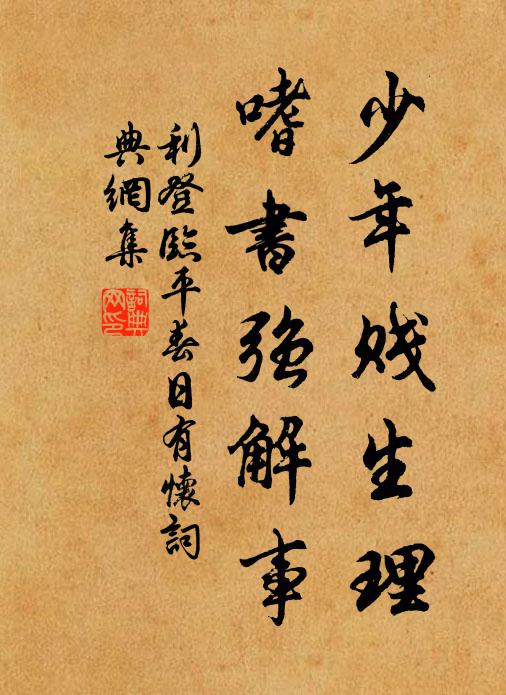 少年贱生理
嗜書强解事
利登臨平春日有懷詞
典網集
詞典網印